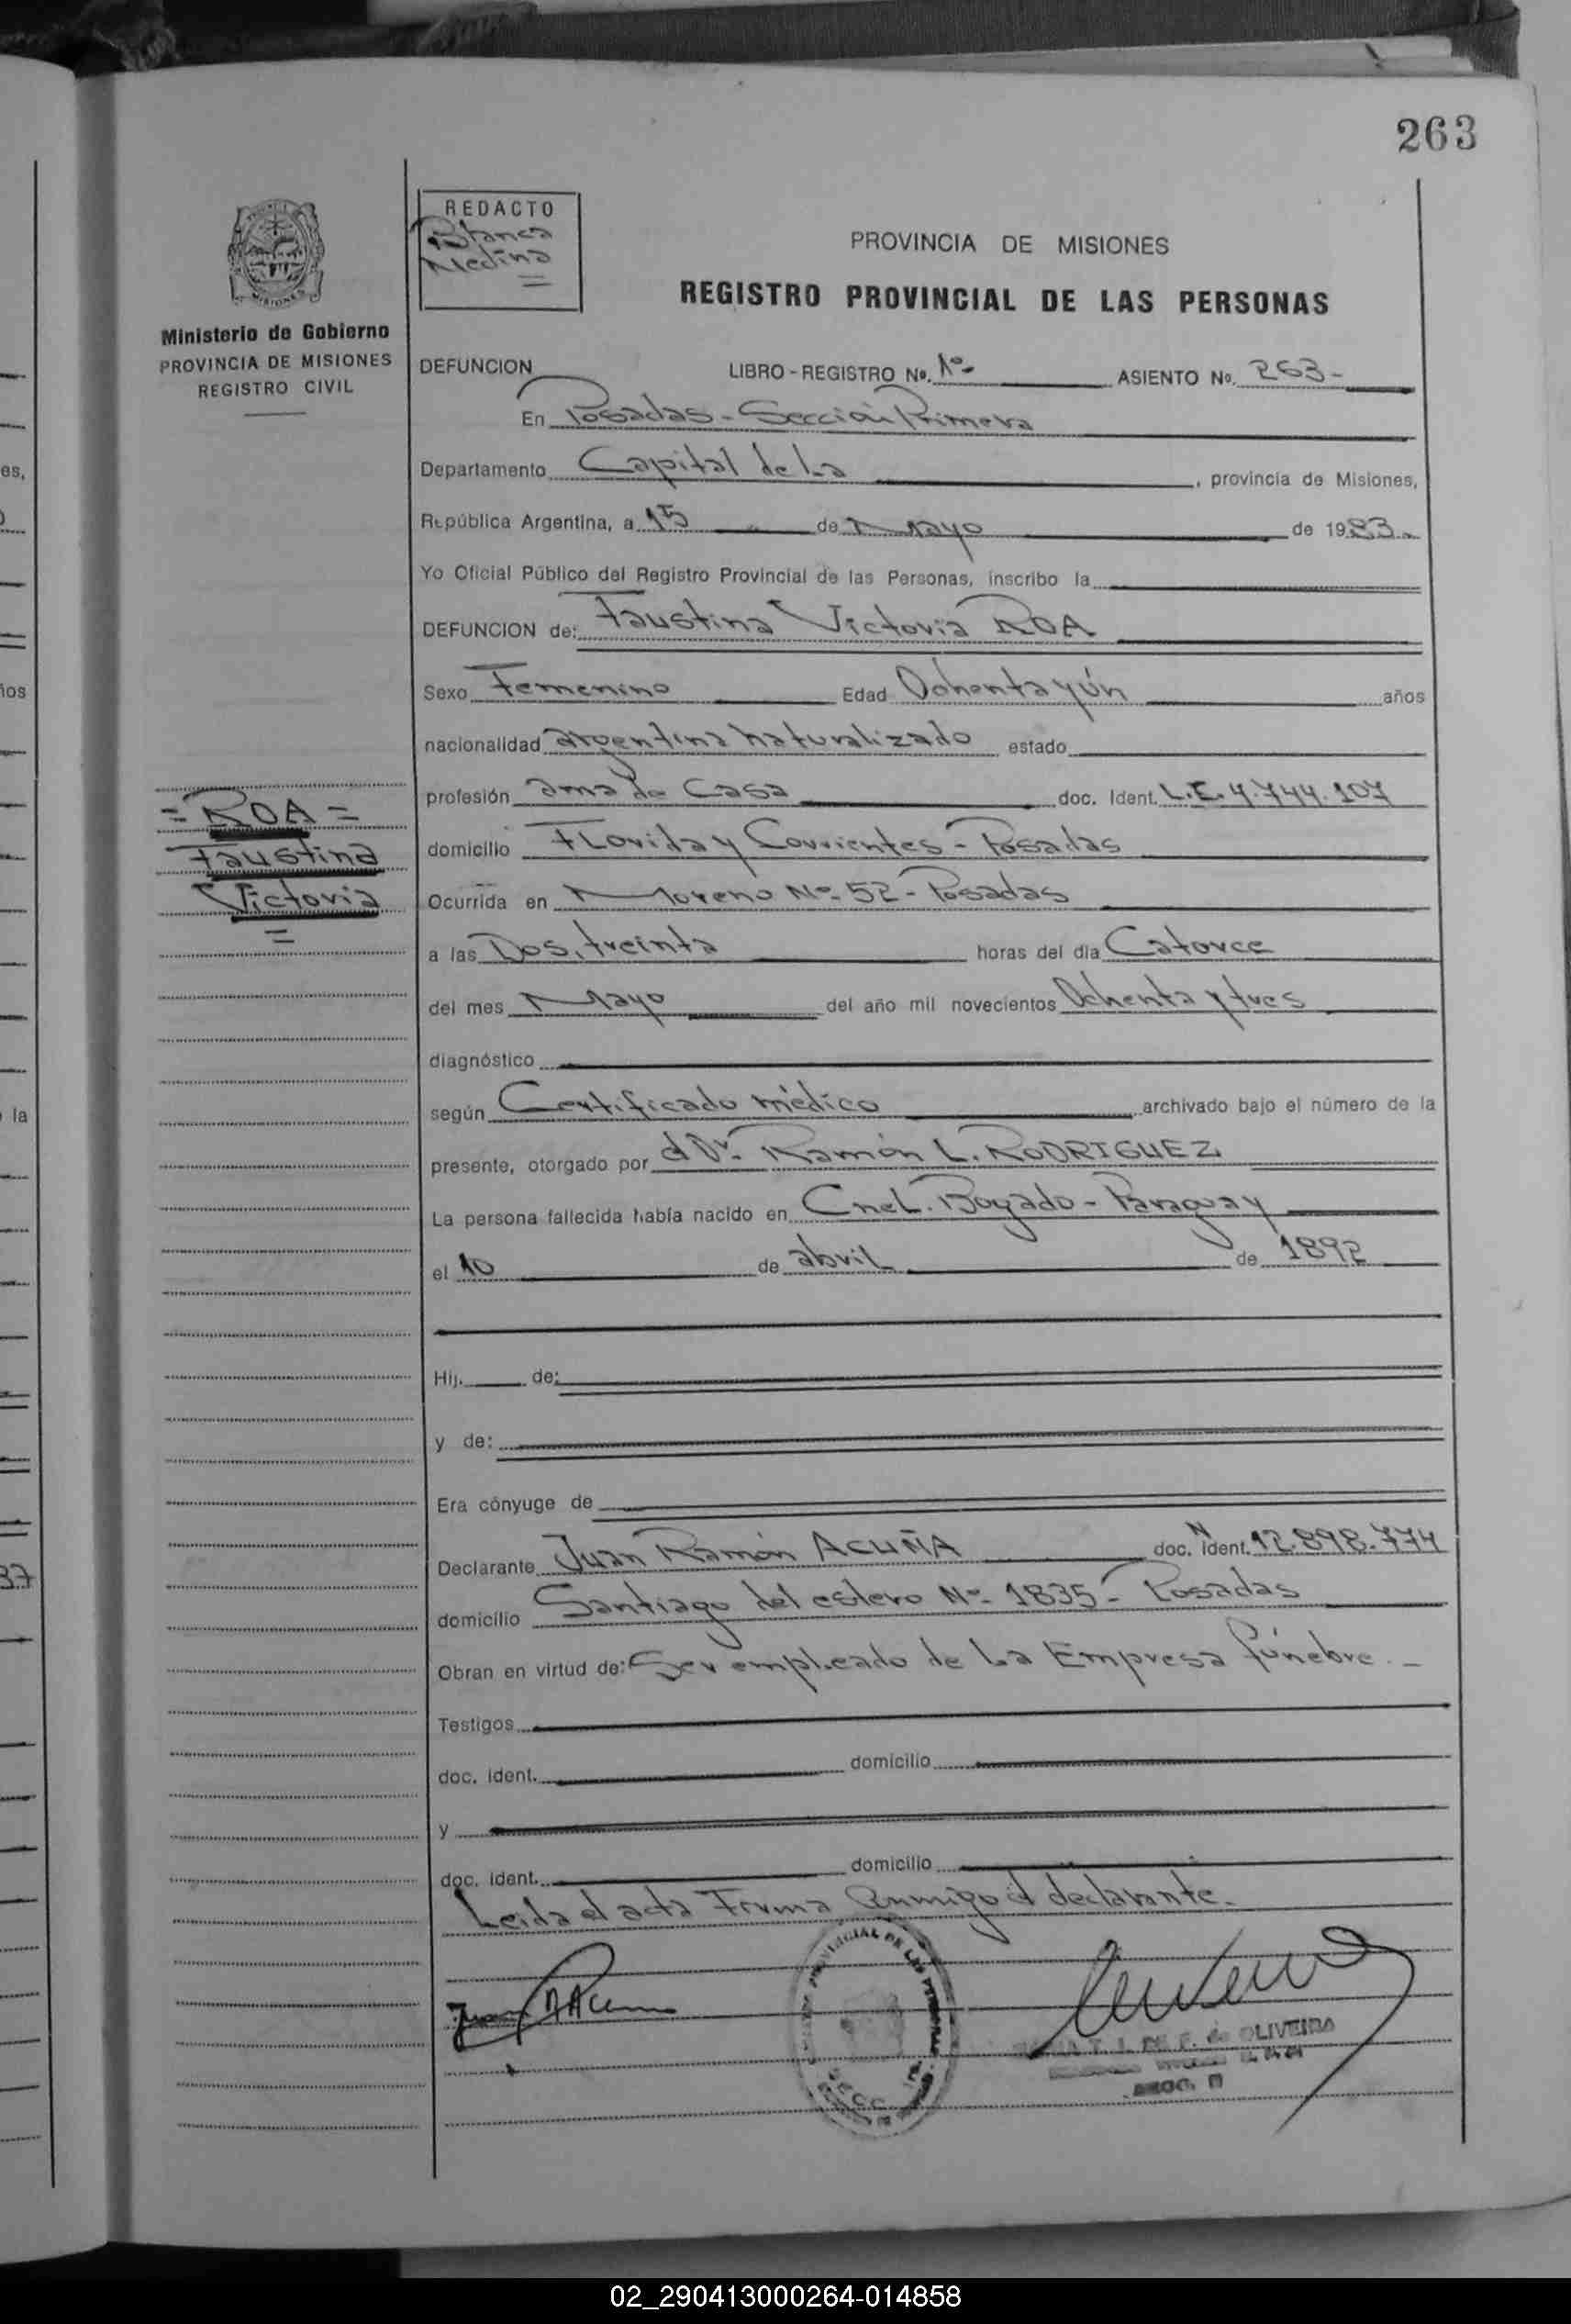 263
REDACTO
Blanca
Medina
PROVINCIA DE MISIONES
REGISTRO PROVINCIAL DE LAS PERSONAS
MISIONES
Ministerio de Gobierno
PROVINCIA DE MISIONES
REGISTRO CIVIL
DEFUNCION LIBRO - REGISTRO No. 1º- ASIENTO No. 263-
En Posadas - Sección Primera
Departamento Capital de La , provincia de Misiones,
República Argentina, a 15 de Mayo de 1983.
Yo Oficial Público del Registro Provincial de las Personas, inscribo la
DEFUNCION de: Faustina Victoria ROA
Sexo Femenino Edad Ochenta y ún años
nacionalidad argentina naturalizado estado
profesión ama de Casa doc. Ident. L.E. 4.744.107
= ROA =
Faustina
Victoria
=
domicilio Florida y Corrientes - Posadas
Ocurrida en Moreno Nº 52 - Posadas
a las Dos, treinta horas del día Catorce
del mes Mayo del año mil novecientos Ochenta y tres
diagnóstico
según Certificado médico archivado bajo el número de la
presente, otorgado por el Dr. Ramón L. RODRIGUEZ
La persona fallecida había nacido en Cnel. Bogado - Paraguay
el 10 de abril de 1892
Hij. de:
y de:
Era cónyuge de
Declarante Juan Ramón ACUÑA doc. N ident. 12.898.774
domicilio Santiago del estero Nº 1835 - Posadas
Obran en virtud de: Ser empleado de La Empresa fúnebre. -
Testigos
doc. ident. domicilio
y
doc. ident. domicilio
Leída el acta Firma Conmigo el declarante.
de OLIVEIRA
es,
ños
la
37
02_290413000264-014858